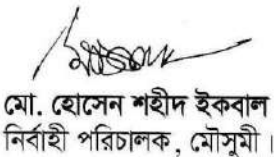 মো. হোসেন শহীদ ইকবাল
নির্বাহী পরিচালক, মৌসুমী।